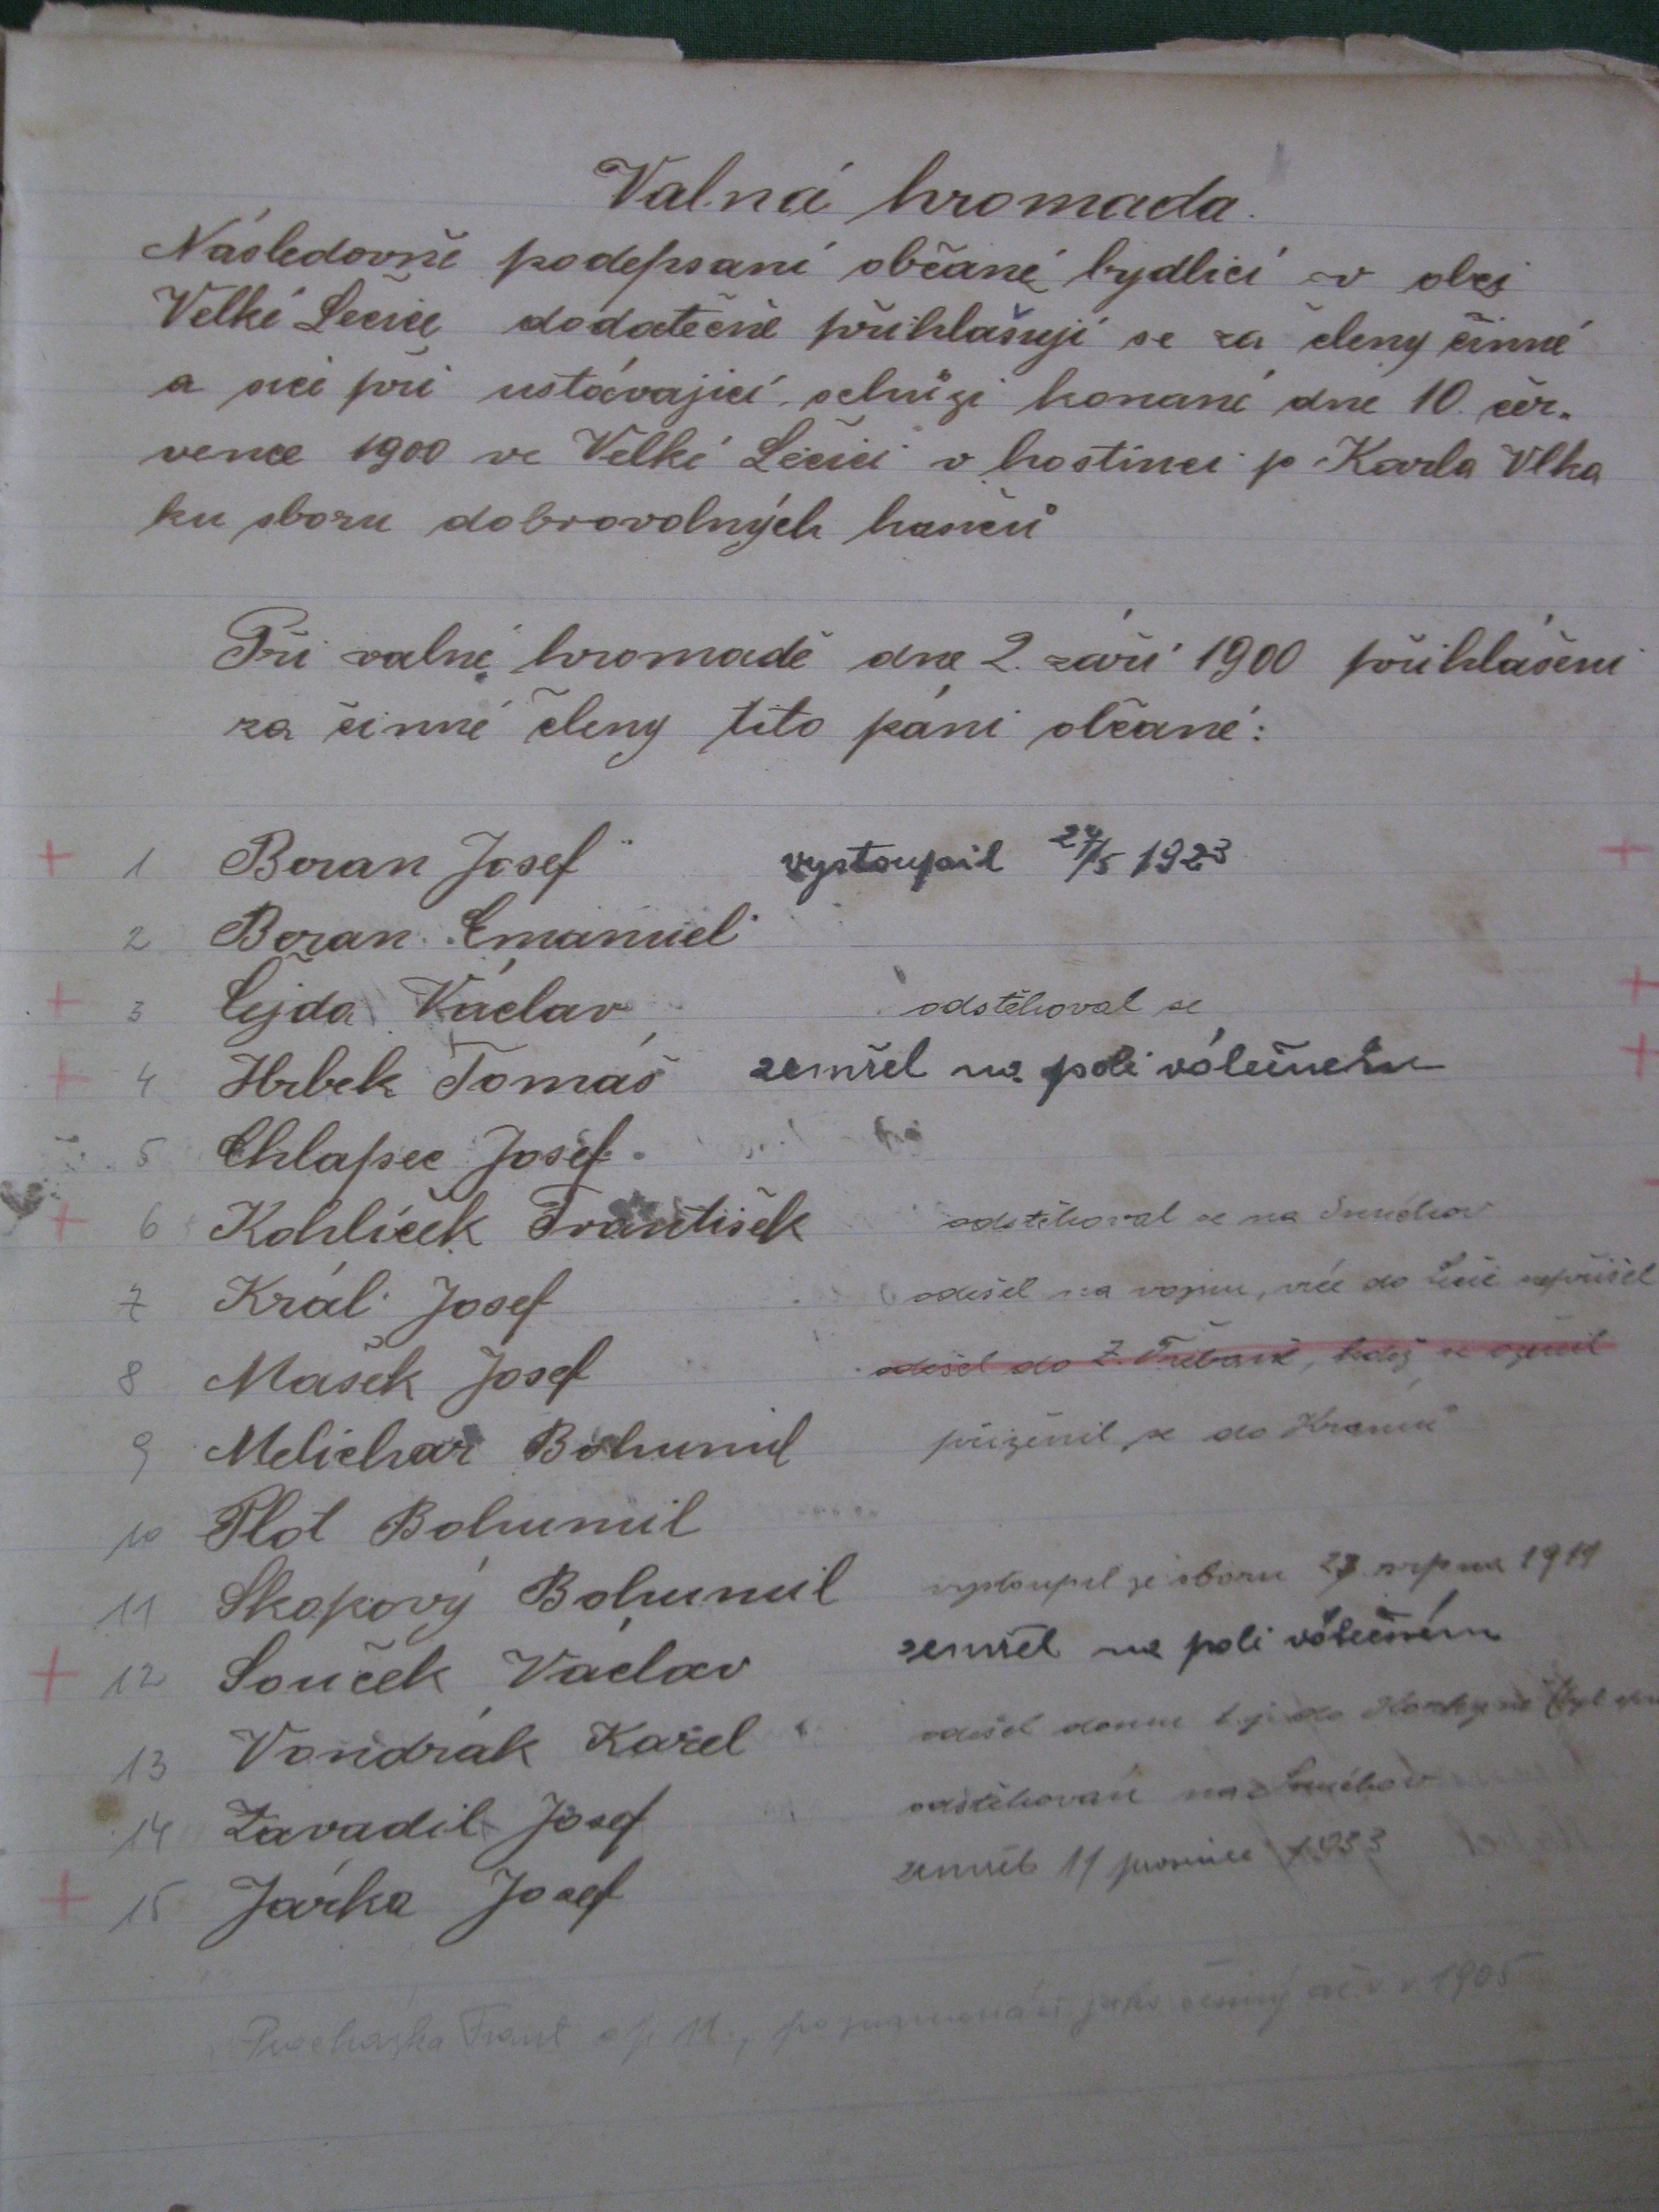 Valná hromada.
Následovně podepsaní občané bydlící v obci
Velké Lečice dodatečně přihlašují se za členy činné
a sici při ustávající schůzi konané dne 10. čer-
vence 1900 ve Velké Lečici v hostinci p Karla Vlka
ku sboru dobrovolných hasičů
Při valné hromadě dne 2. září 1900 přihlášeni
za činné členy tito páni občané:
+ 1 Beran Josef vystoupil 24/5 1923 +
2 Beran Emanuel
+ 3 Čejda Václav odstěhoval se +
+ 4 Hrbek Tomáš zemřel na poli válečném +
5 Chlapec Josef
+ 6 Kohlíček František odstěhoval se na Smíchov
7 Král Josef odešel na vojnu, více do Lečic nepřišel
8 Mašek Josef odešel do Z. Třebaně, kdež se oženil
9 Melichar Bohumil přiženil se do
10 Plot Bohumil
11 Skopový Bohumil vystoupil ze sboru srpna 1911
+ 12 Souček Václav zemřel na poli válečném
13 Vondrák Karel odešel domu t.j. do
14 Zavadil Josef odstěhován na Smíchov
+ 15 Jarka Josef zemřel 11 prosince 1933
Procházka Frant čp 11., jako činný r. 1905